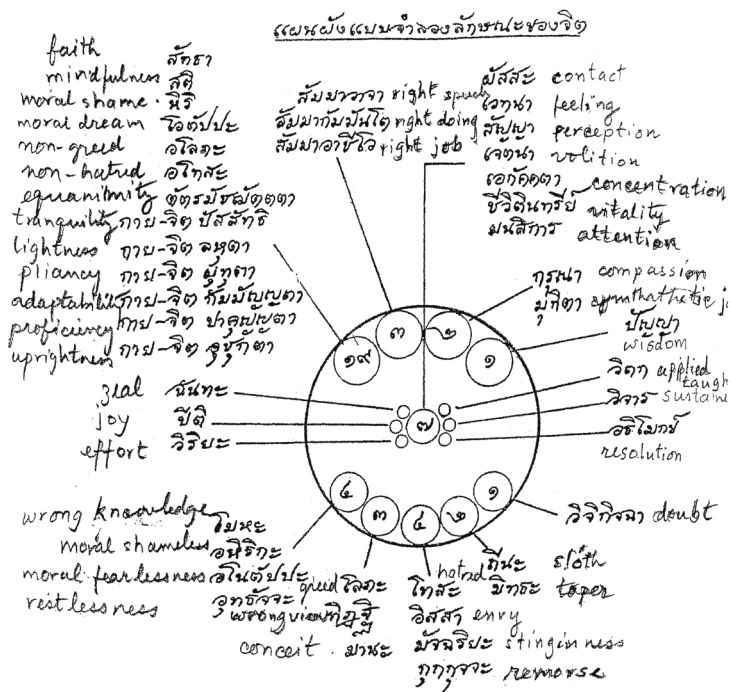 แผนผังแบบจำลองลักษณะของจิต
faith สัทธา
mindfulness สติ
moral shame. หิริ
moral dream โอตัปปะ
non-greed อโลภะ
non-hatred อโทสะ
equanimity ตัตรมัชฌัตตตา
tranquility กาย-จิต ปัสสัทธิ
lightness กาย-จิต ลหุตา
pliancy กาย-จิต มุทุตา
adaptability กาย-จิต กัมมัญญตา
proficiency กาย-จิต ปาคุญญตา
uprightness กาย-จิต อุชุกัตา
สัมมาวาจา right speech
สัมมากัมมันโต right doing
สัมมาอาชีโว right job
ผัสสะ contact
เวทนา feeling
สัญญา perception
เจตนา volition
เอกัคคตา concentration
ชีวิตินทรีย์ vitality
มนสิการ attention
กรุณา compassion
มุทิตา
ปัญญา
wisdom
วิตก applied
taugh
วิจาร sustaine
อธิโมกข์
resolution
๑๙ ๓ ๒ ๑
๗
zeal ฉันทะ
joy ปีติ
effort วิริยะ
๔ ๓ ๔ ๒ ๑
วิจิกิจฉา doubt
wrong knowledge โมหะ
moral shameless อหิริกะ
moral fearlessness อโนตัปปะ
restlessness อุทธัจจะ
greed โลภะ
wrong view ทิฏฐิ
conceit. มานะ
hatred โทสะ
อิสสา envy
มัจฉริยะ stinginness
กุกกุจจะ remorse
ถีนะ sloth
มิทธะ toper